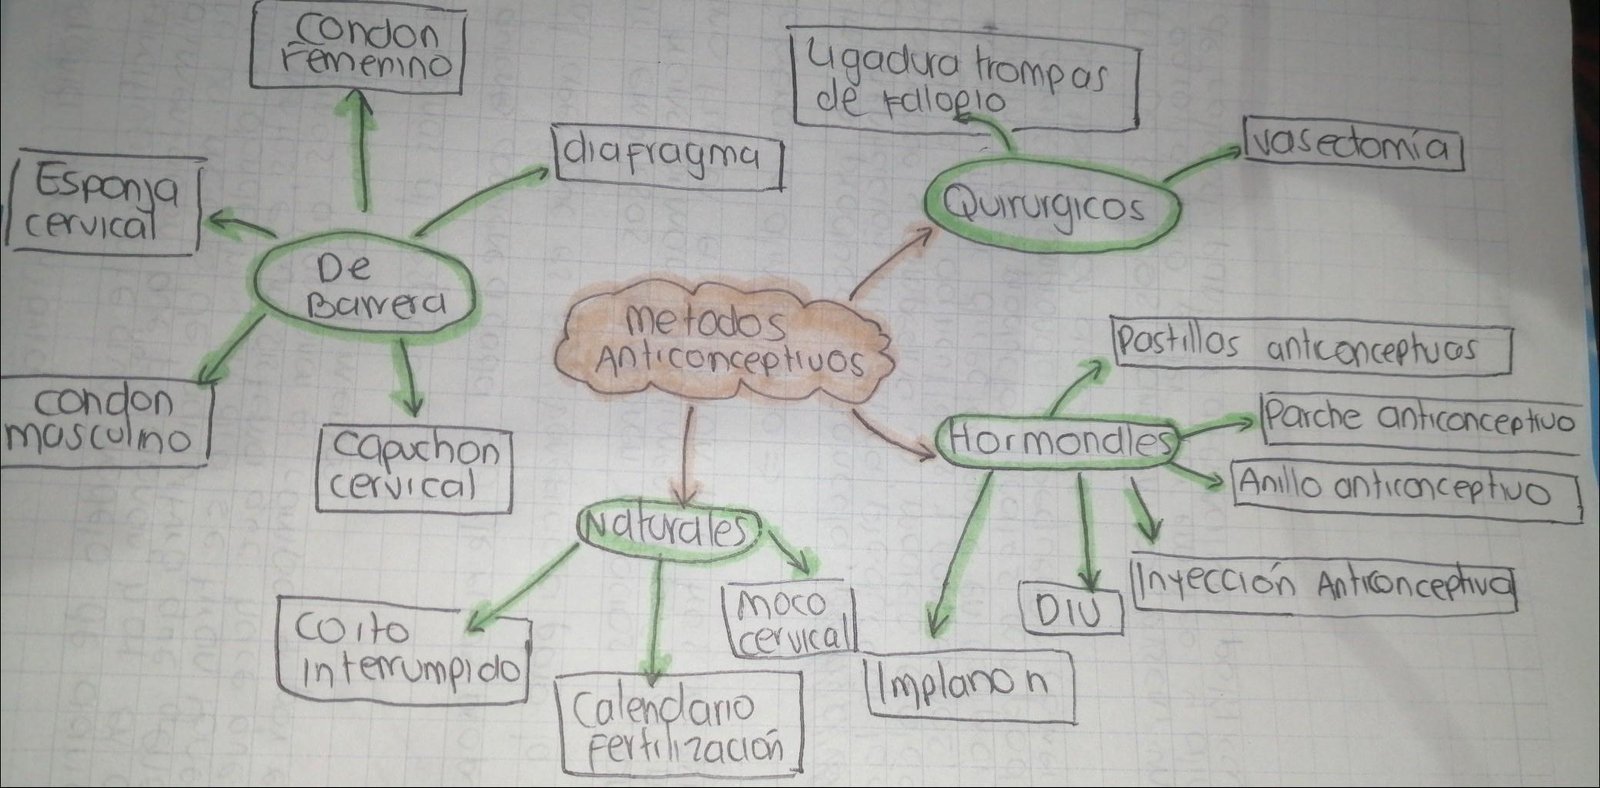 condon
Femenino
Esponja
cervical
diafragma
De
Barrera
condon
masculino
capuchon
cervical
Ligadura trompas
de Falopio
vasectomía
Quirurgicos
metodos
Anticonceptivos
Pastillas anticonceptivas
Hormonales
Parche anticonceptivo
Anillo anticonceptivo
Inyección Anticonceptiva
DIU
Implanon
Naturales
coito
interrumpido
Calendario
Fertilización
moco
cervical